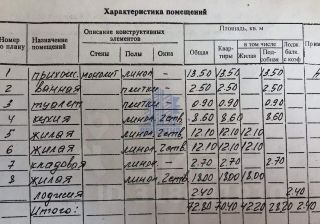 Характеристика помещений
Номер по плану Назначение помещений Описание конструктивных элементов Площадь, кв. м
Стены Полы Окна Общая Квартиры в том числе Лодж. балк. с коэф
Жилая Подсобная
1 прихож. линол - 13.50 13.50 13.50
2 ванная плитки - 2.50 2.50 2.50
3 туалет плитки - 0.90 0.90 0.90
4 кухня линол 2ств. 8.60 8.60 8.60
5 жилая линол 2ств. 12.10 12.10 12.10
6 жилая линол. 2ств. 12.10 12.10 12.10
7 кладовая линол. - 2.70 2.70 2.70
8 жилая линол 2ств. 18.00 18.00 18.00
лоджия 2.40 2.40
Итого: 72.80 70.40 42.20 28.20 2.40